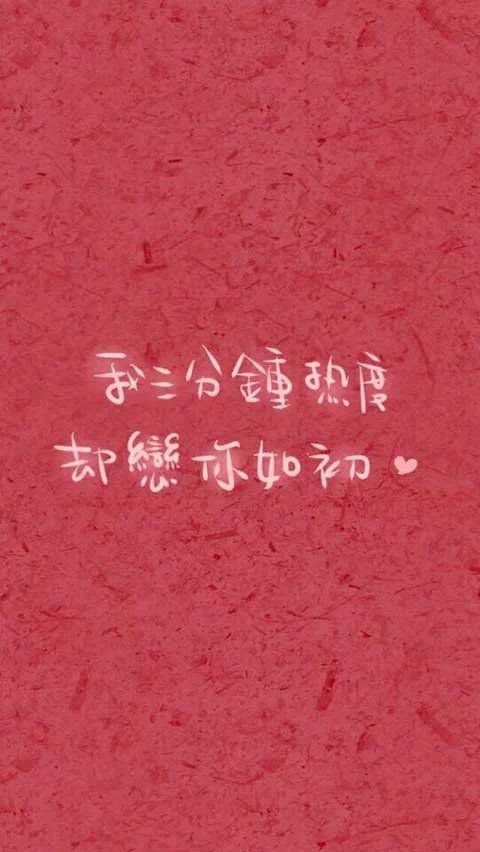 我三分鍾热度
却戀你如初